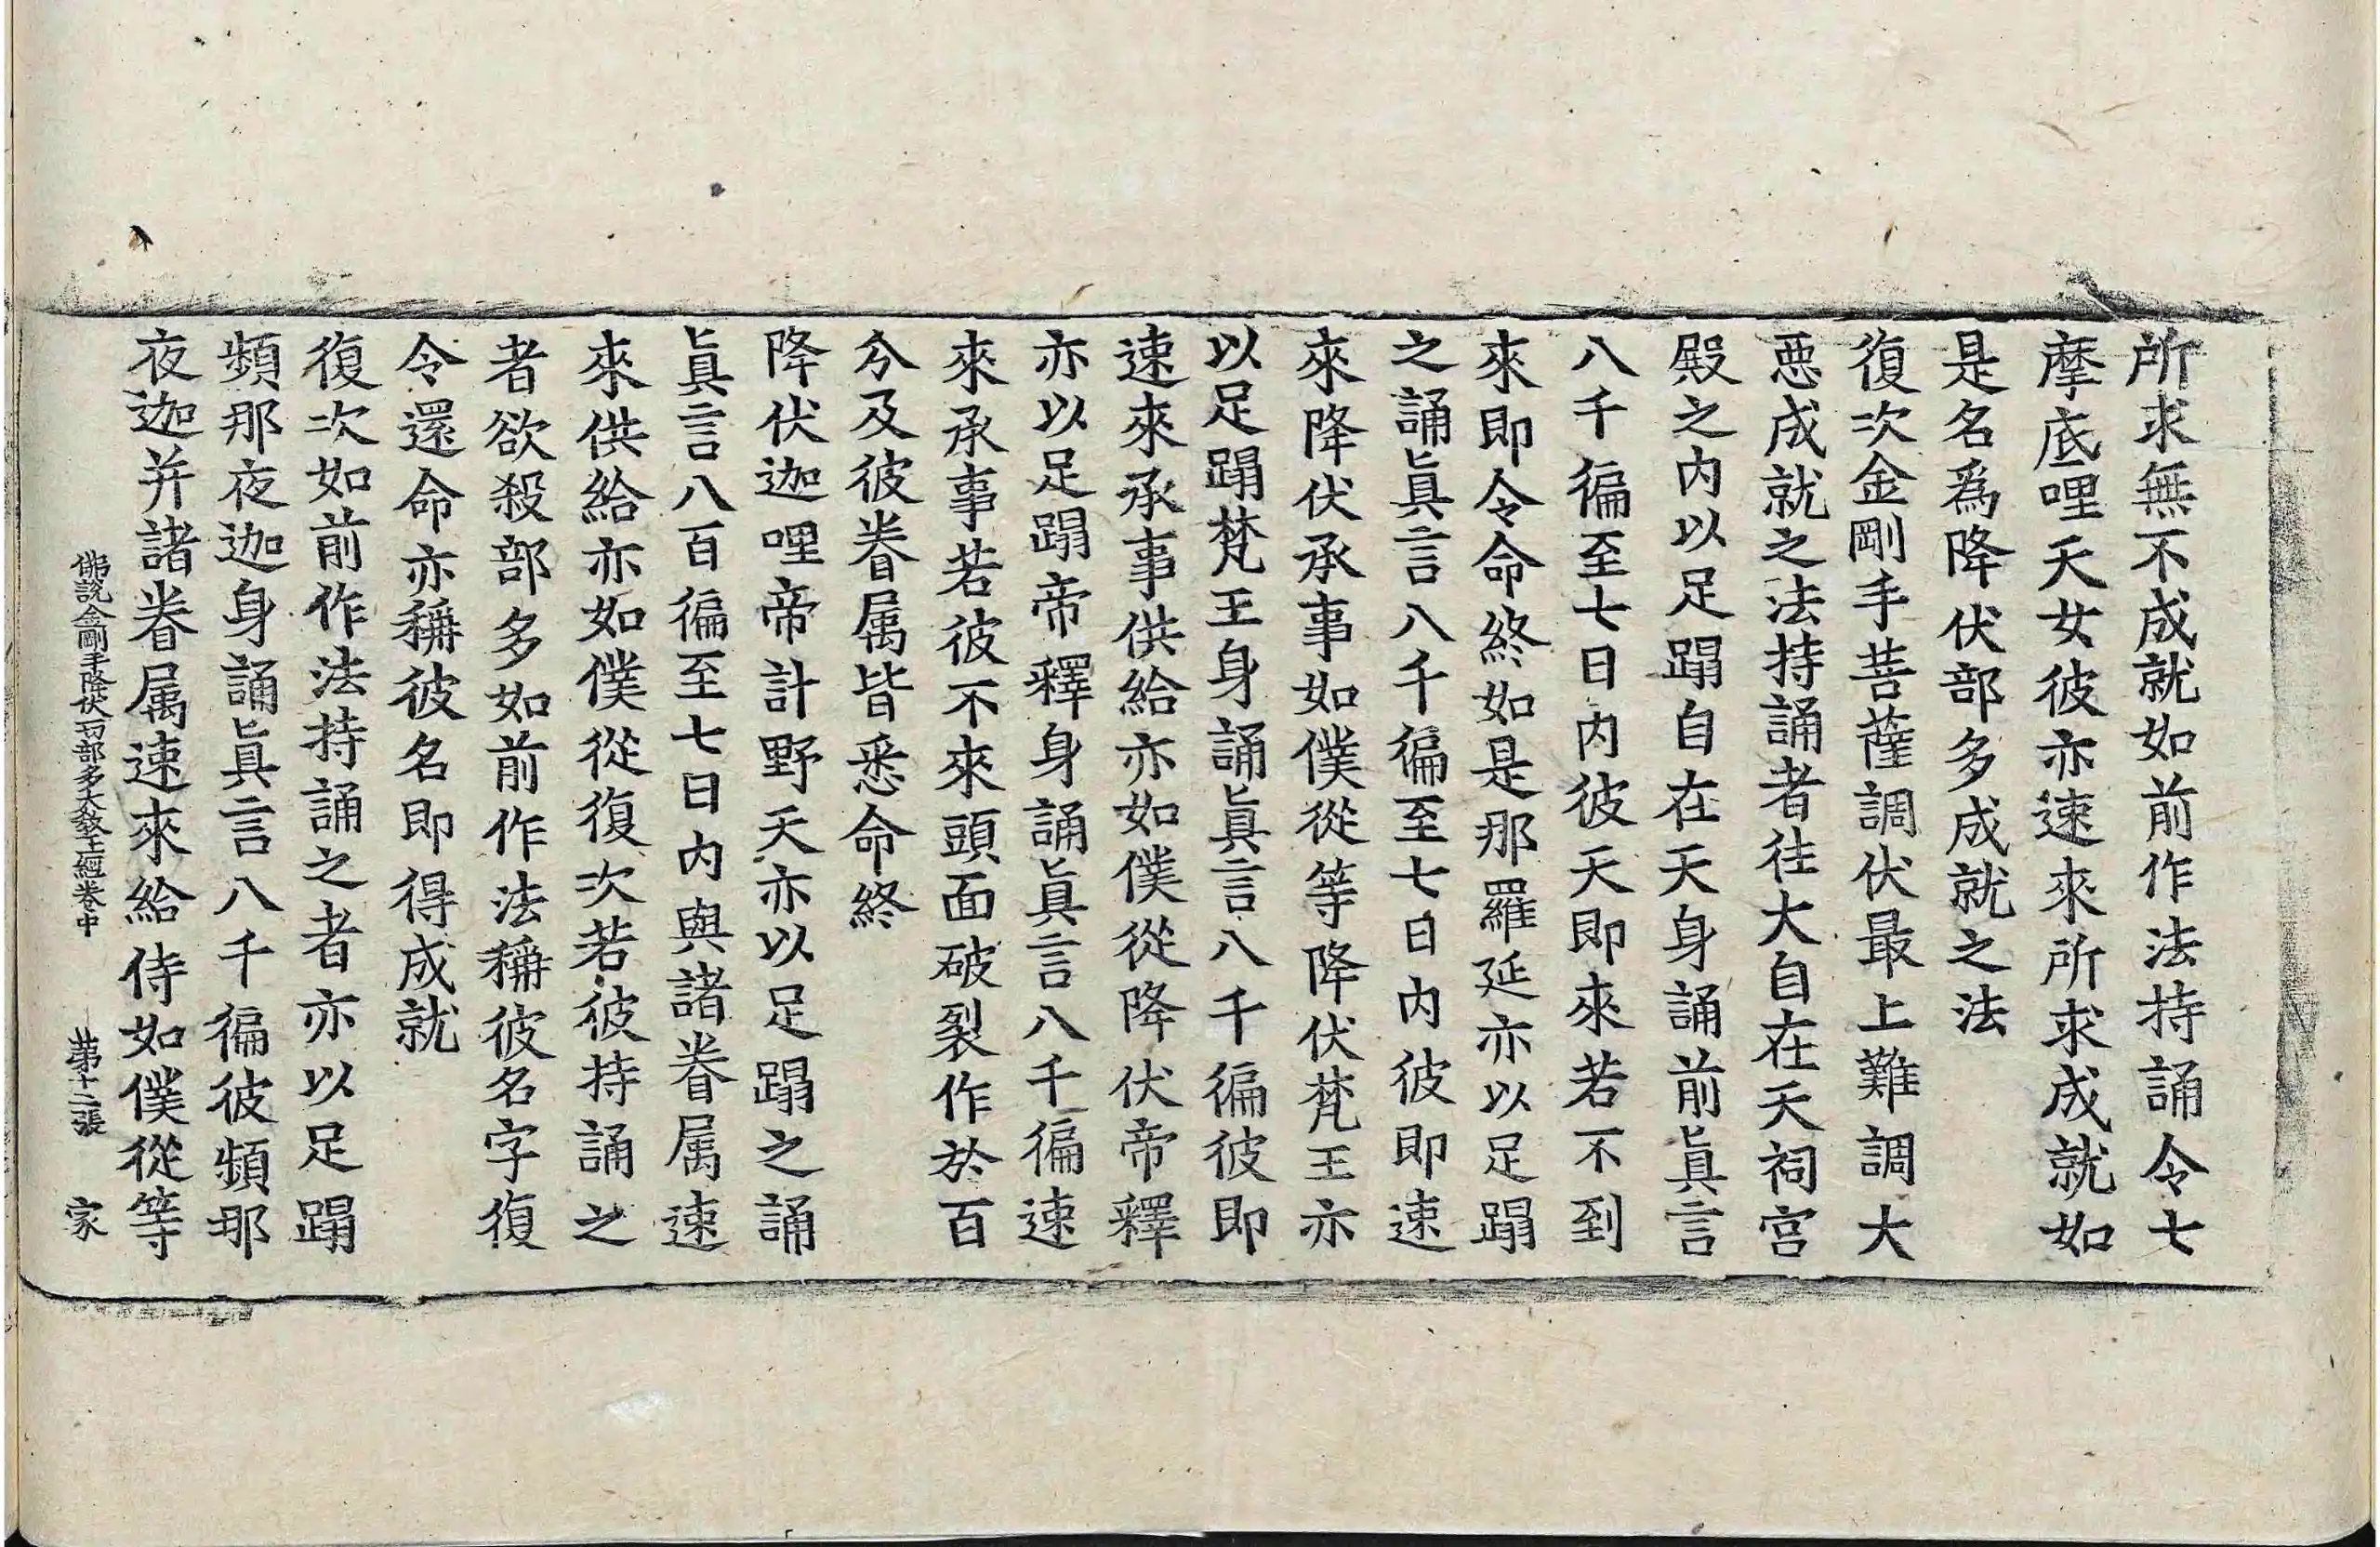 所求無不成就如前作法持誦令七
摩底哩天女彼亦速來所求成就如
是名爲降伏部多成就之法
復次金剛手菩薩調伏最上難調大
惡成就之法持誦者往大自在天祠宫
殿之内以足蹋自在天身誦前眞言
八千徧至七日内彼天即來若不到
來即令命終如是那羅延亦以足蹋
之誦眞言八千徧至七日内彼即速
來降伏承事如僕從等降伏梵王亦
以足蹋梵王身誦眞言八千徧彼即
速來承事供給亦如僕從降伏帝釋
亦以足蹋帝釋身誦眞言八千徧速
來承事若彼不來頭面破裂作於百
分及彼眷属皆悉命終
降伏迦哩帝計野天亦以足蹋之誦
眞言八百徧至七日内與諸眷属速
來供給亦如僕從復次若彼持誦之
者欲殺部多如前作法稱彼名字復
令還命亦稱彼名即得成就
復次如前作法持誦之者亦以足蹋
頻那夜迦身誦眞言八千徧彼頻那
夜迦并諸眷属速來給侍如僕從等
佛說金剛手降伏一切部多大敎王經卷中 第十二張 家